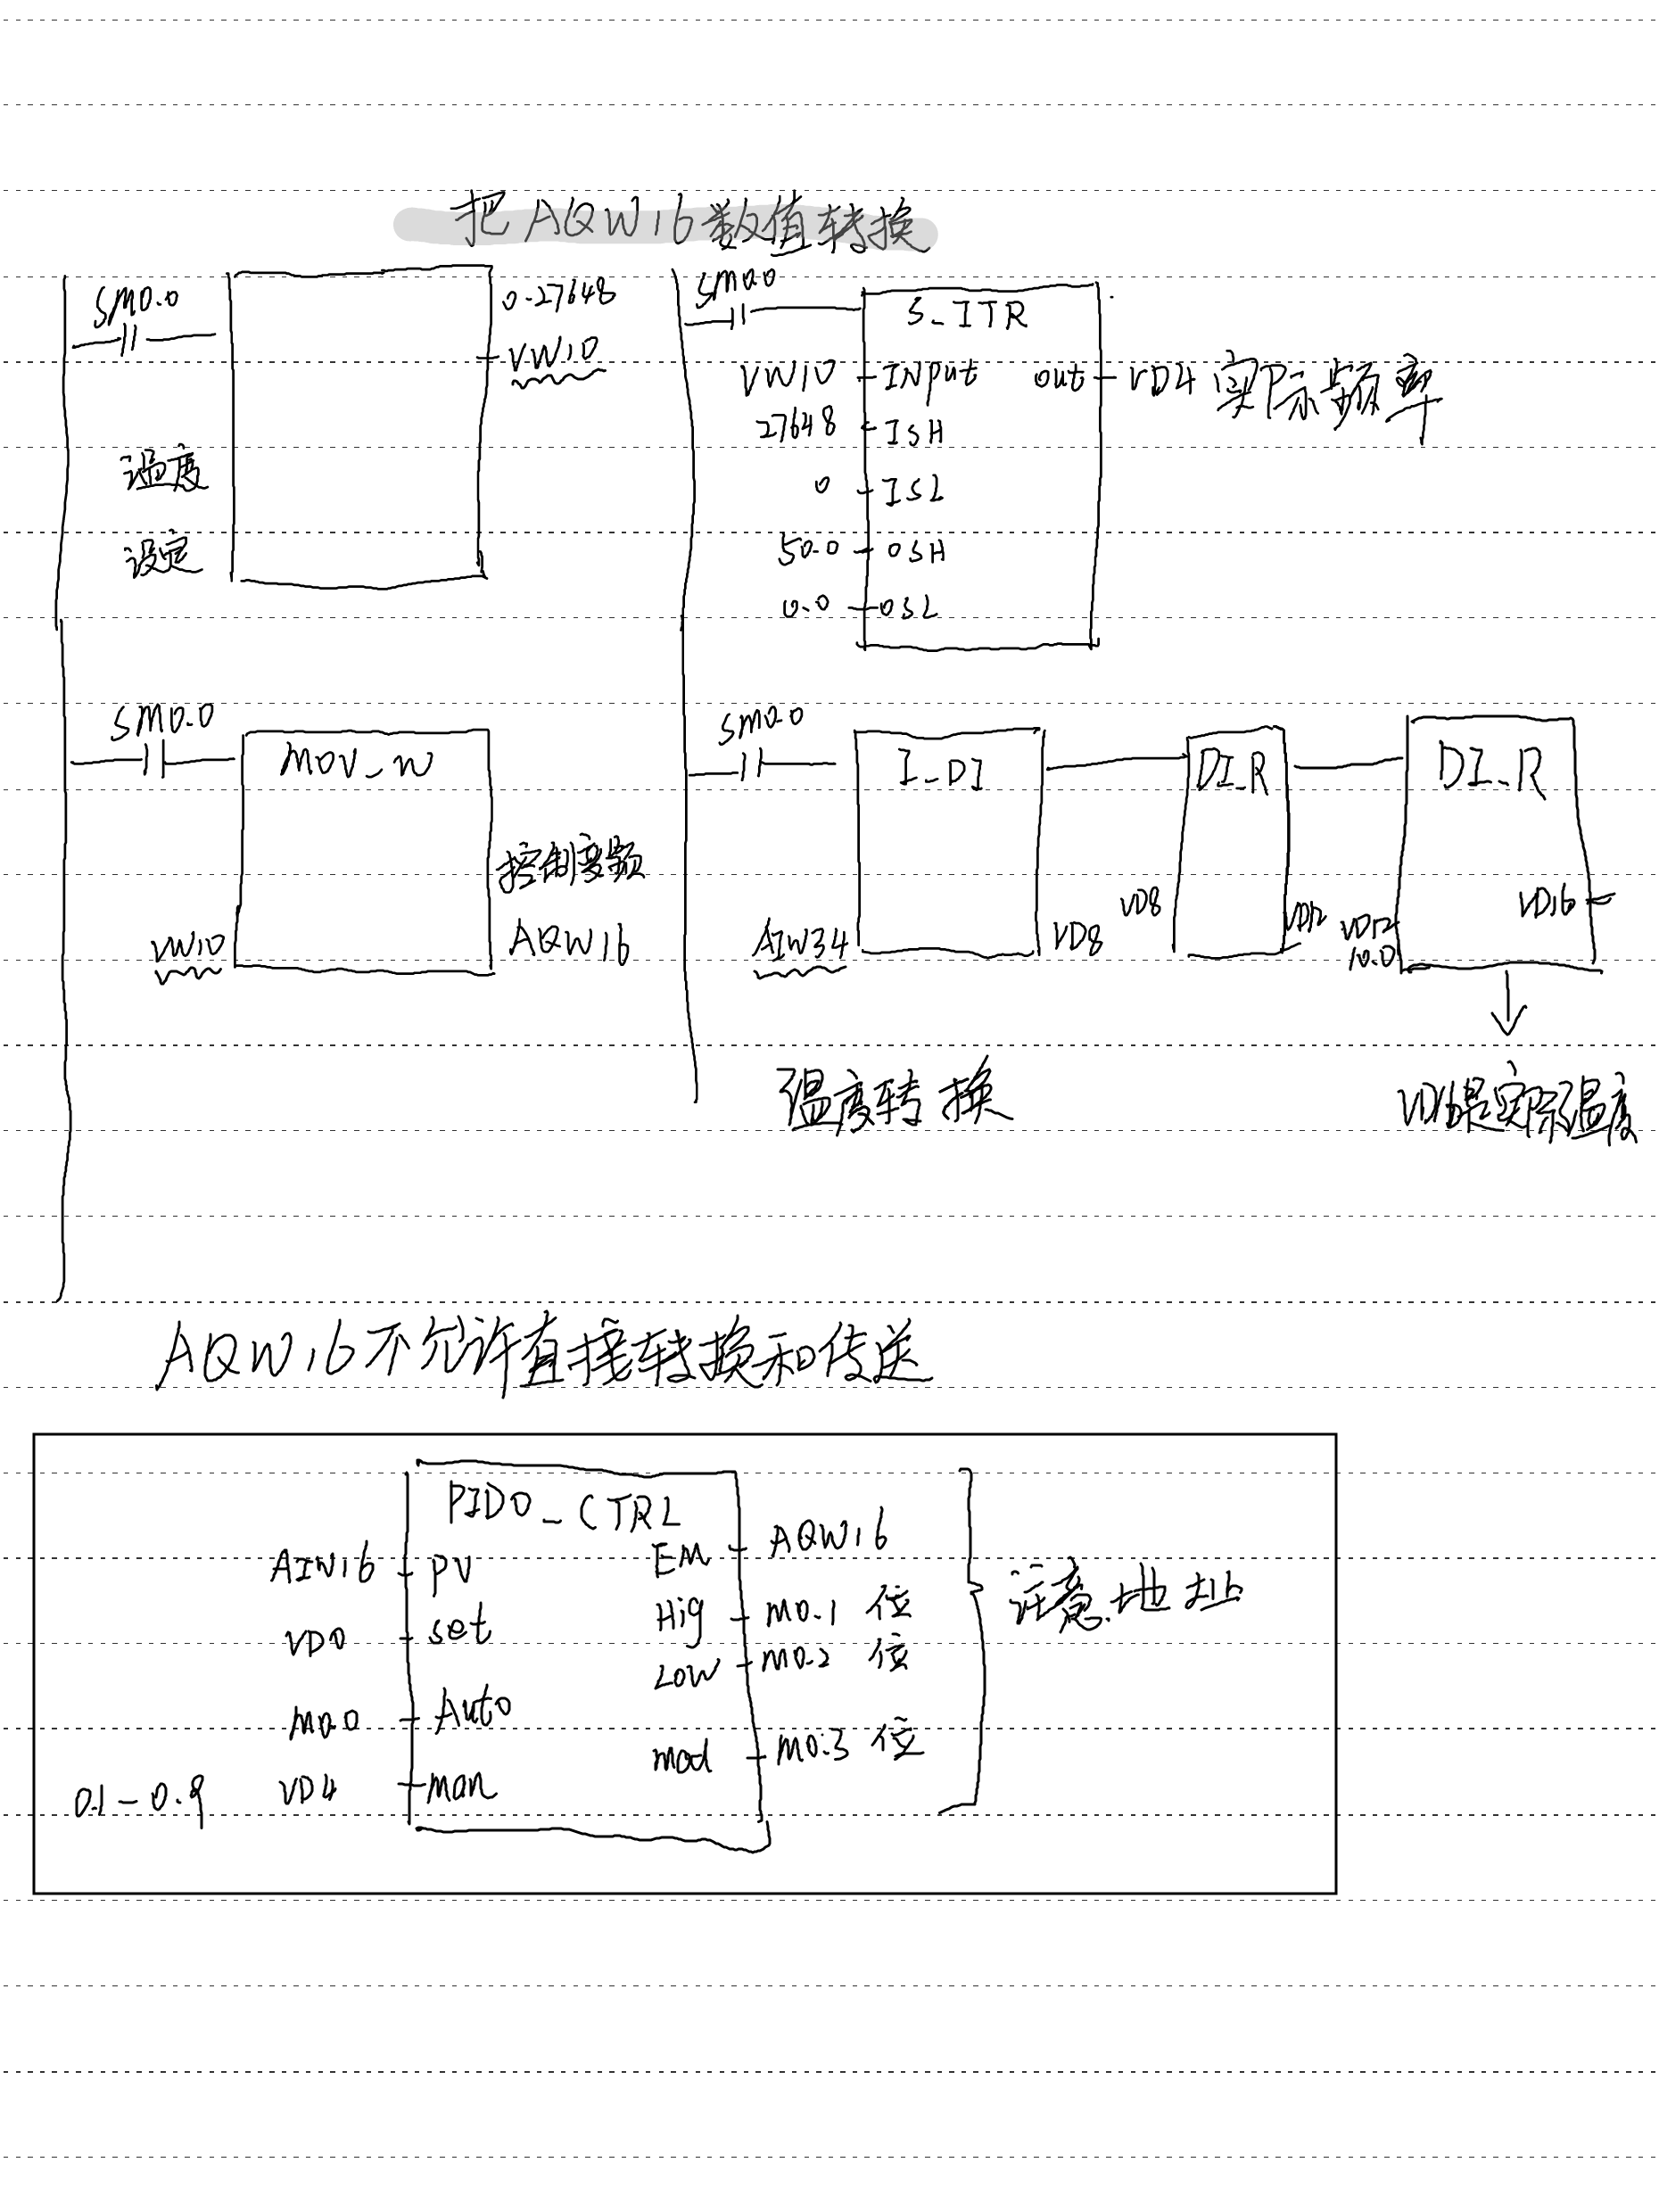 把AQW16数值转换
SM0.0
0-27648
VW10
温度
设定
SM0.0
S_ITR
VW10 INPut out VD4 实际频率
27648 ISH
0 ISL
50.0 OSH
0.0 OSL
SM0.0
MOV_W
控制变频
VW10 AQW16
SM0.0
I_DI DI_R DI_R
AIW34 VD8 VD8 VD12 VD12 VD16
10.0
温度转换 VD16是实际温度
AQW16不允许直接转换和传送
PID0_CTRL
AIW16 PV EM AQW16
VD0 set Hig M0.1 位
Low M0.2 位
M0.0 Auto mod M0.3 位
0.1-0.9 VD4 man
注意地址